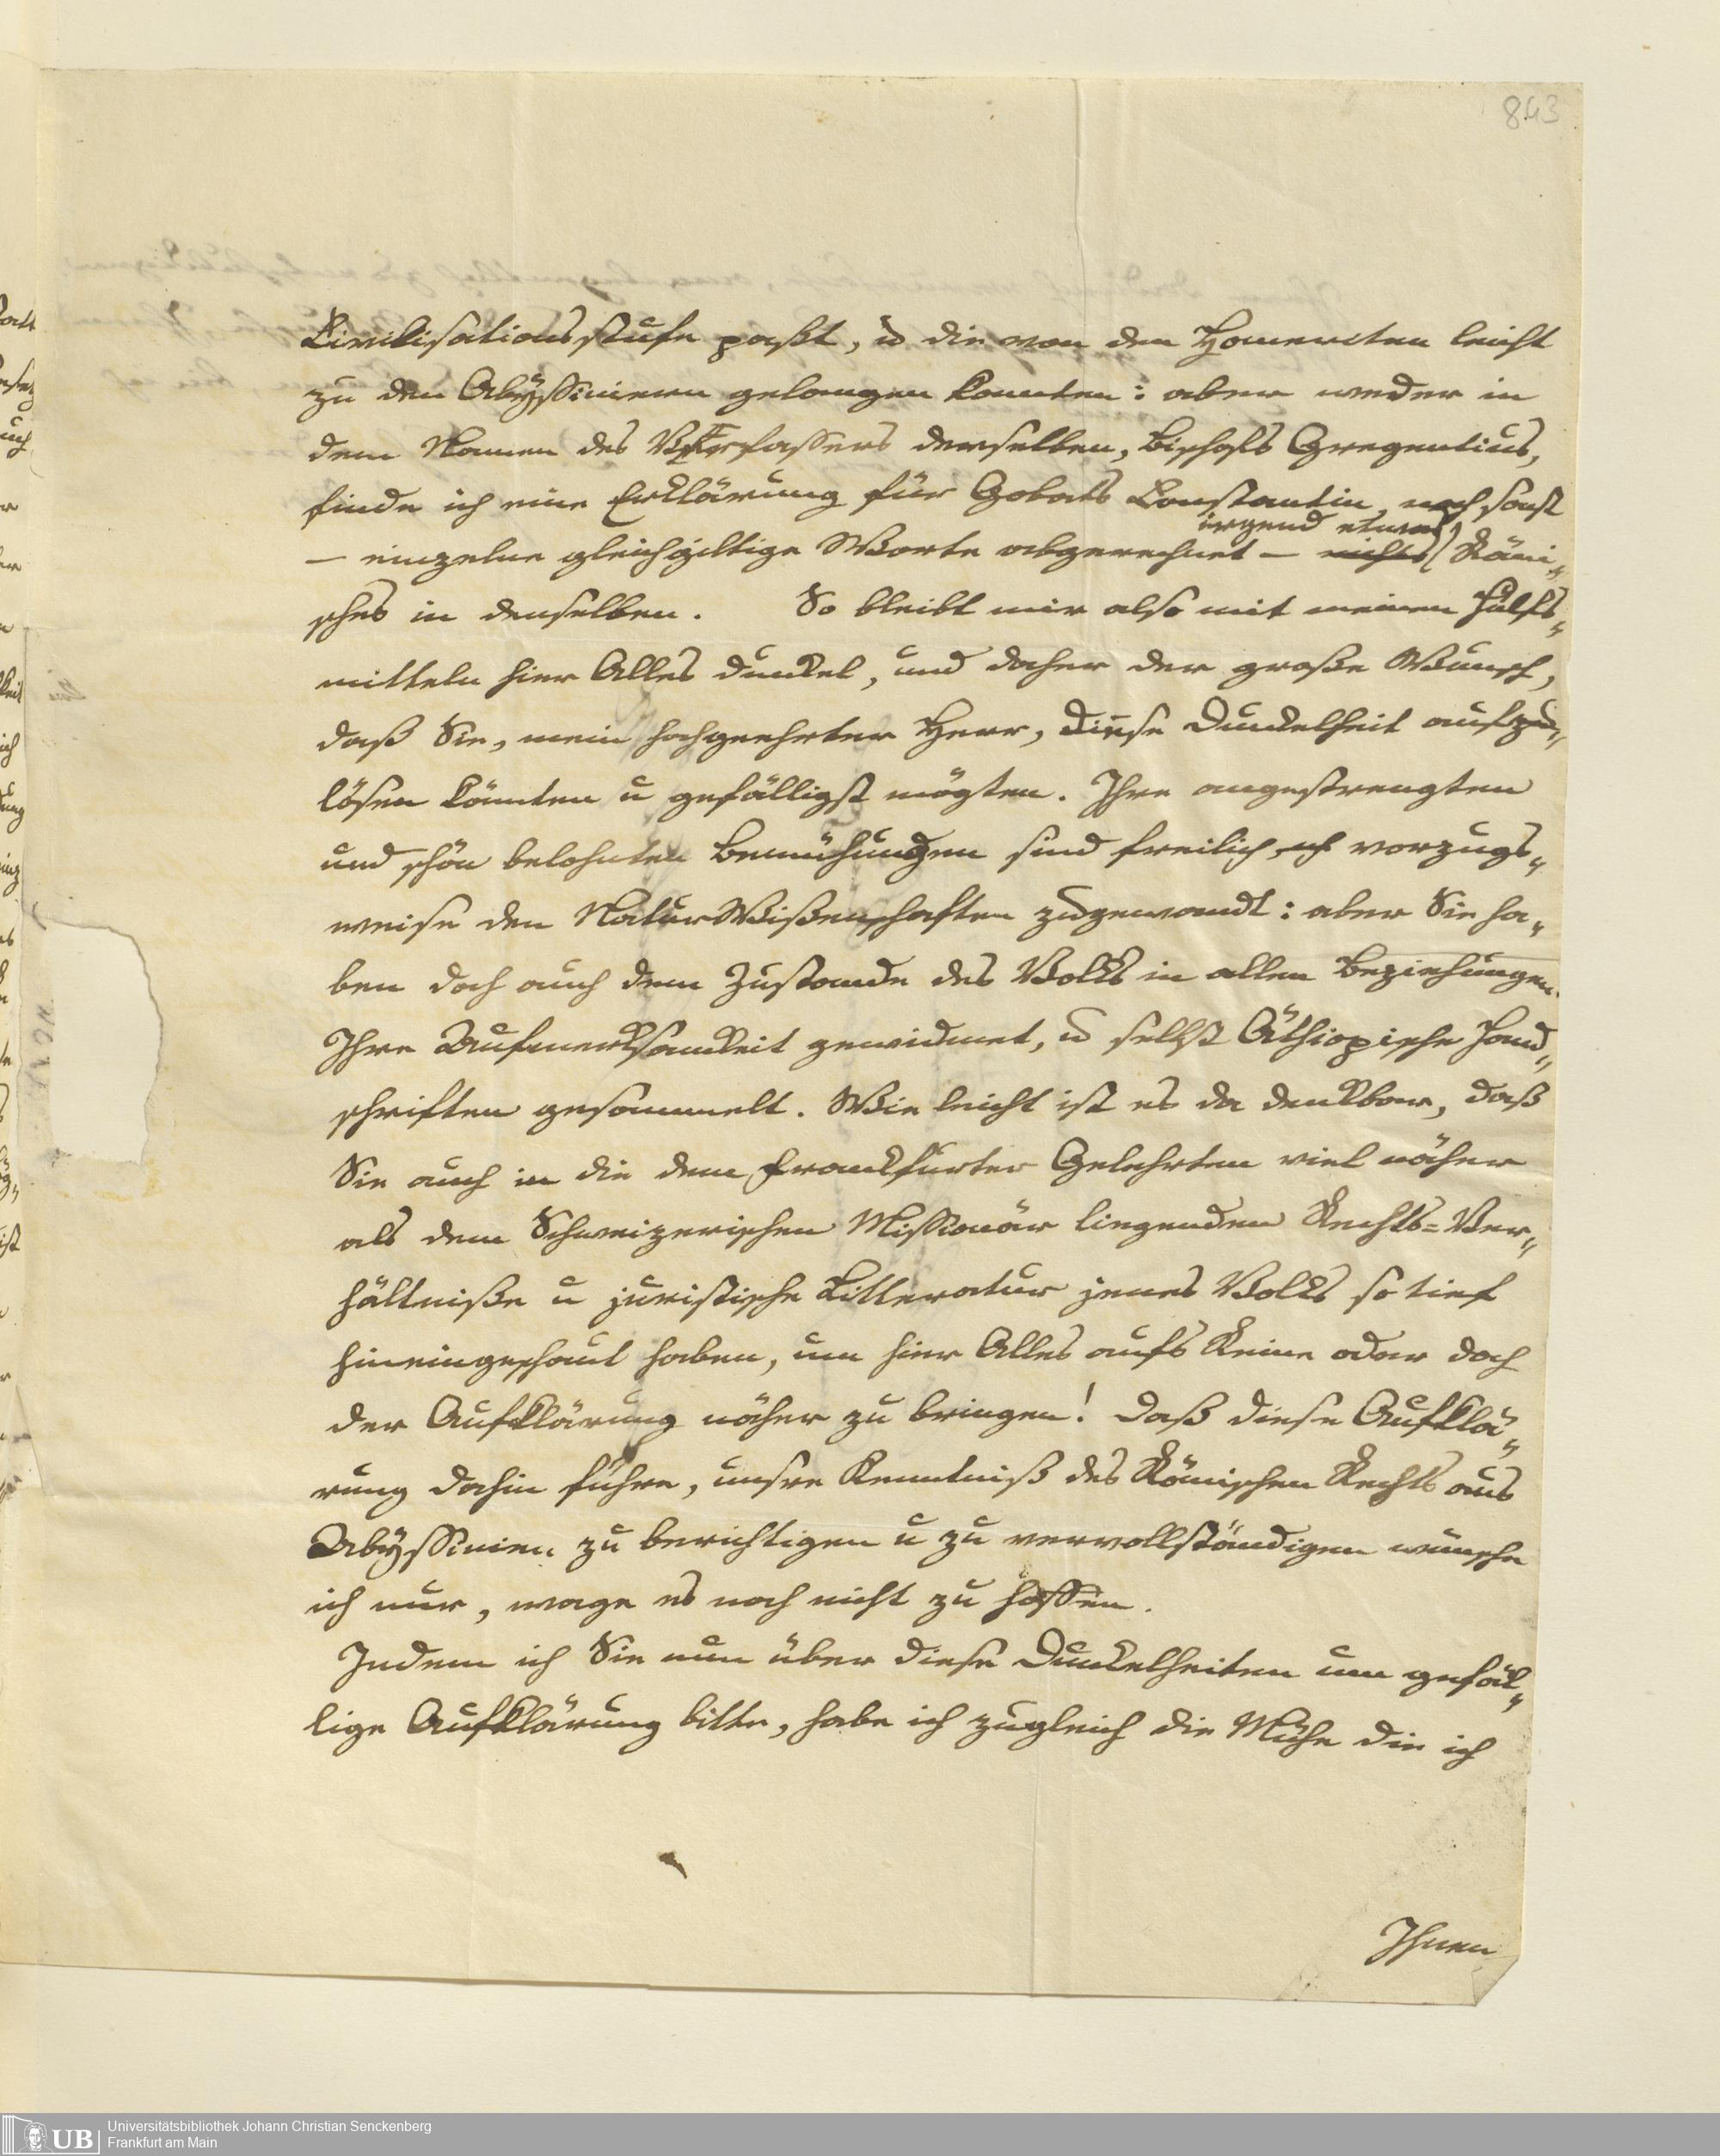 843
Civilisationsstufe paßt, u die von den Homeriten leicht
zu den Abyssiniern gelangen konnten: aber weder in
dem Namen des Verfassers derselben, Bischofs Gregentius,
finde ich eine Erklärung für Gobats Constantin, noch sonst
irgend etwas
— einzelne gleichgiltige Worte abgerechnet — nichts Römi„
sches in denselben. So bleibt mir also mit meinen Hülfs„
mitteln hier Alles dunkel, und daher der große Wunsch,
daß Sie, mein hochgeehrter Herr, diese Dunkelheit aufzu„
lösen könnten u gefälligst mögten. Ihre angestrengten
und schön belohnten Bemühungen sind freilich vorzugs„
weise den NaturWißenschaften zugewandt: aber Sie ha„
ben doch auch dem Zustande des Volks in allen Beziehungen
Ihre Aufmerksamkeit gewidmet, u selbst Äthiopische Hand„
schriften gesammelt. Wie leicht ist es da denkbar, daß
Sie auch in die dem Frankfurter Gelehrten viel näher
als dem Schweizerischen Missionär liegenden Rechts=Ver„
hältniße u juristische Litteratur jenes Volks so tief
hineingeschaut haben, um hier Alles aufs Reine oder doch
der Aufklärung näher zu bringen! Daß diese Aufklä„
rung dahin führe, unsre Kenntniß des Römischen Rechts aus
Abyssinien zu berichtigen u zu vervollständigen wünsche
ich nur, wage es noch nicht zu hoffen.
Indem ich Sie nun über diese Dunkelheiten um gefäl„
lige Aufklärung bitte, habe ich zugleich die Mühe die ich
Ihnen
UB Universitätsbibliothek Johann Christian Senckenberg
Frankfurt am Main